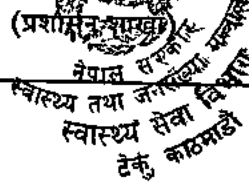 (प्रशासन शाखा)
नेपाल सरकार
स्वास्थ्य तथा जनसंख्या
स्वास्थ्य सेवा विभाग
टेकु, काठमाडौं